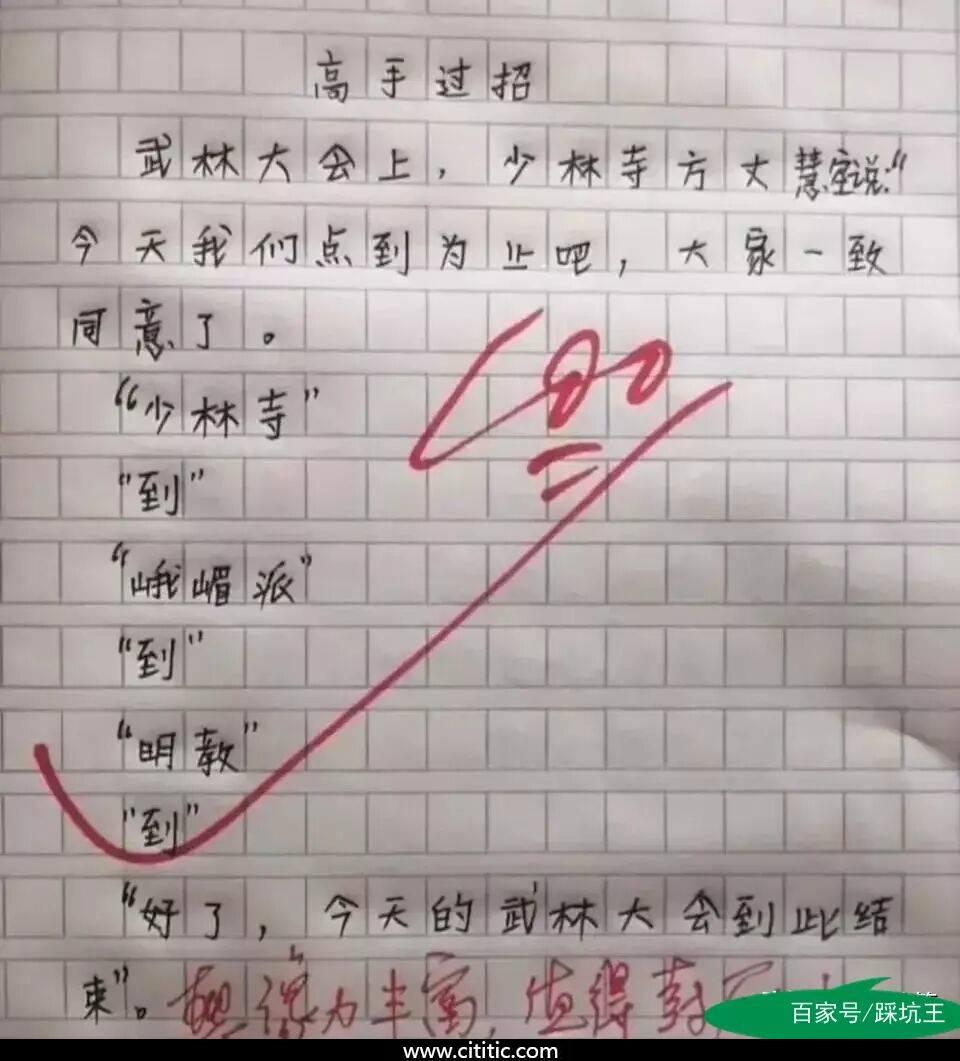 高手过招
武林大会上，少林寺方丈慧空说:“
今天我们点到为止吧，大家一致
同意了。
100
“少林寺”
“到”
“峨嵋派”
“到”
“明教”
“到”
“好了，今天的武林大会到此结
束”。想象力丰富，值得
百家号/踩坑王
www.cititic.com